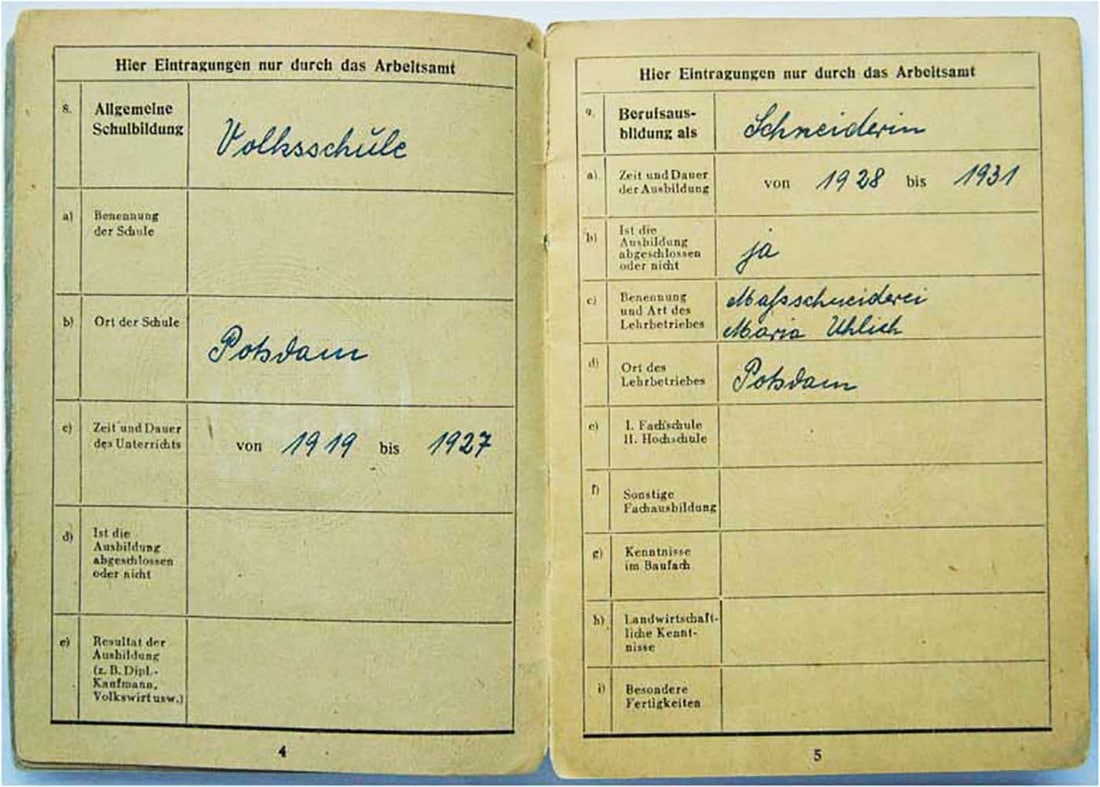 Hier Eintragungen nur durch das Arbeitsamt
8. Allgemeine
Schulbildung
Volksschule
a) Benennung
der Schule
b) Ort der Schule
Potsdam
c) Zeit und Dauer
des Unterrichts
von 1919 bis 1927
d) Ist die
Ausbildung
abgeschlossen
oder nicht
e) Resultat der
Ausbildung
(z. B. Dipl.-
Kaufmann,
Volkswirt usw.)
4
Hier Eintragungen nur durch das Arbeitsamt
9. Berufsaus-
bildung als
Schneiderin
a) Zeit und Dauer
der Ausbildung
von 1928 bis 1931
b) Ist die
Ausbildung
abgeschlossen
oder nicht
ja
c) Benennung
und Art des
Lehrbetriebes
Maßschneiderei
Maria Uhlich
d) Ort des
Lehrbetriebes
Potsdam
e) I. Fachschule
II. Hochschule
f) Sonstige
Fachausbildung
g) Kenntnisse
im Baufach
h) Landwirtschaft-
liche Kennt-
nisse
i) Besondere
Fertigkeiten
5